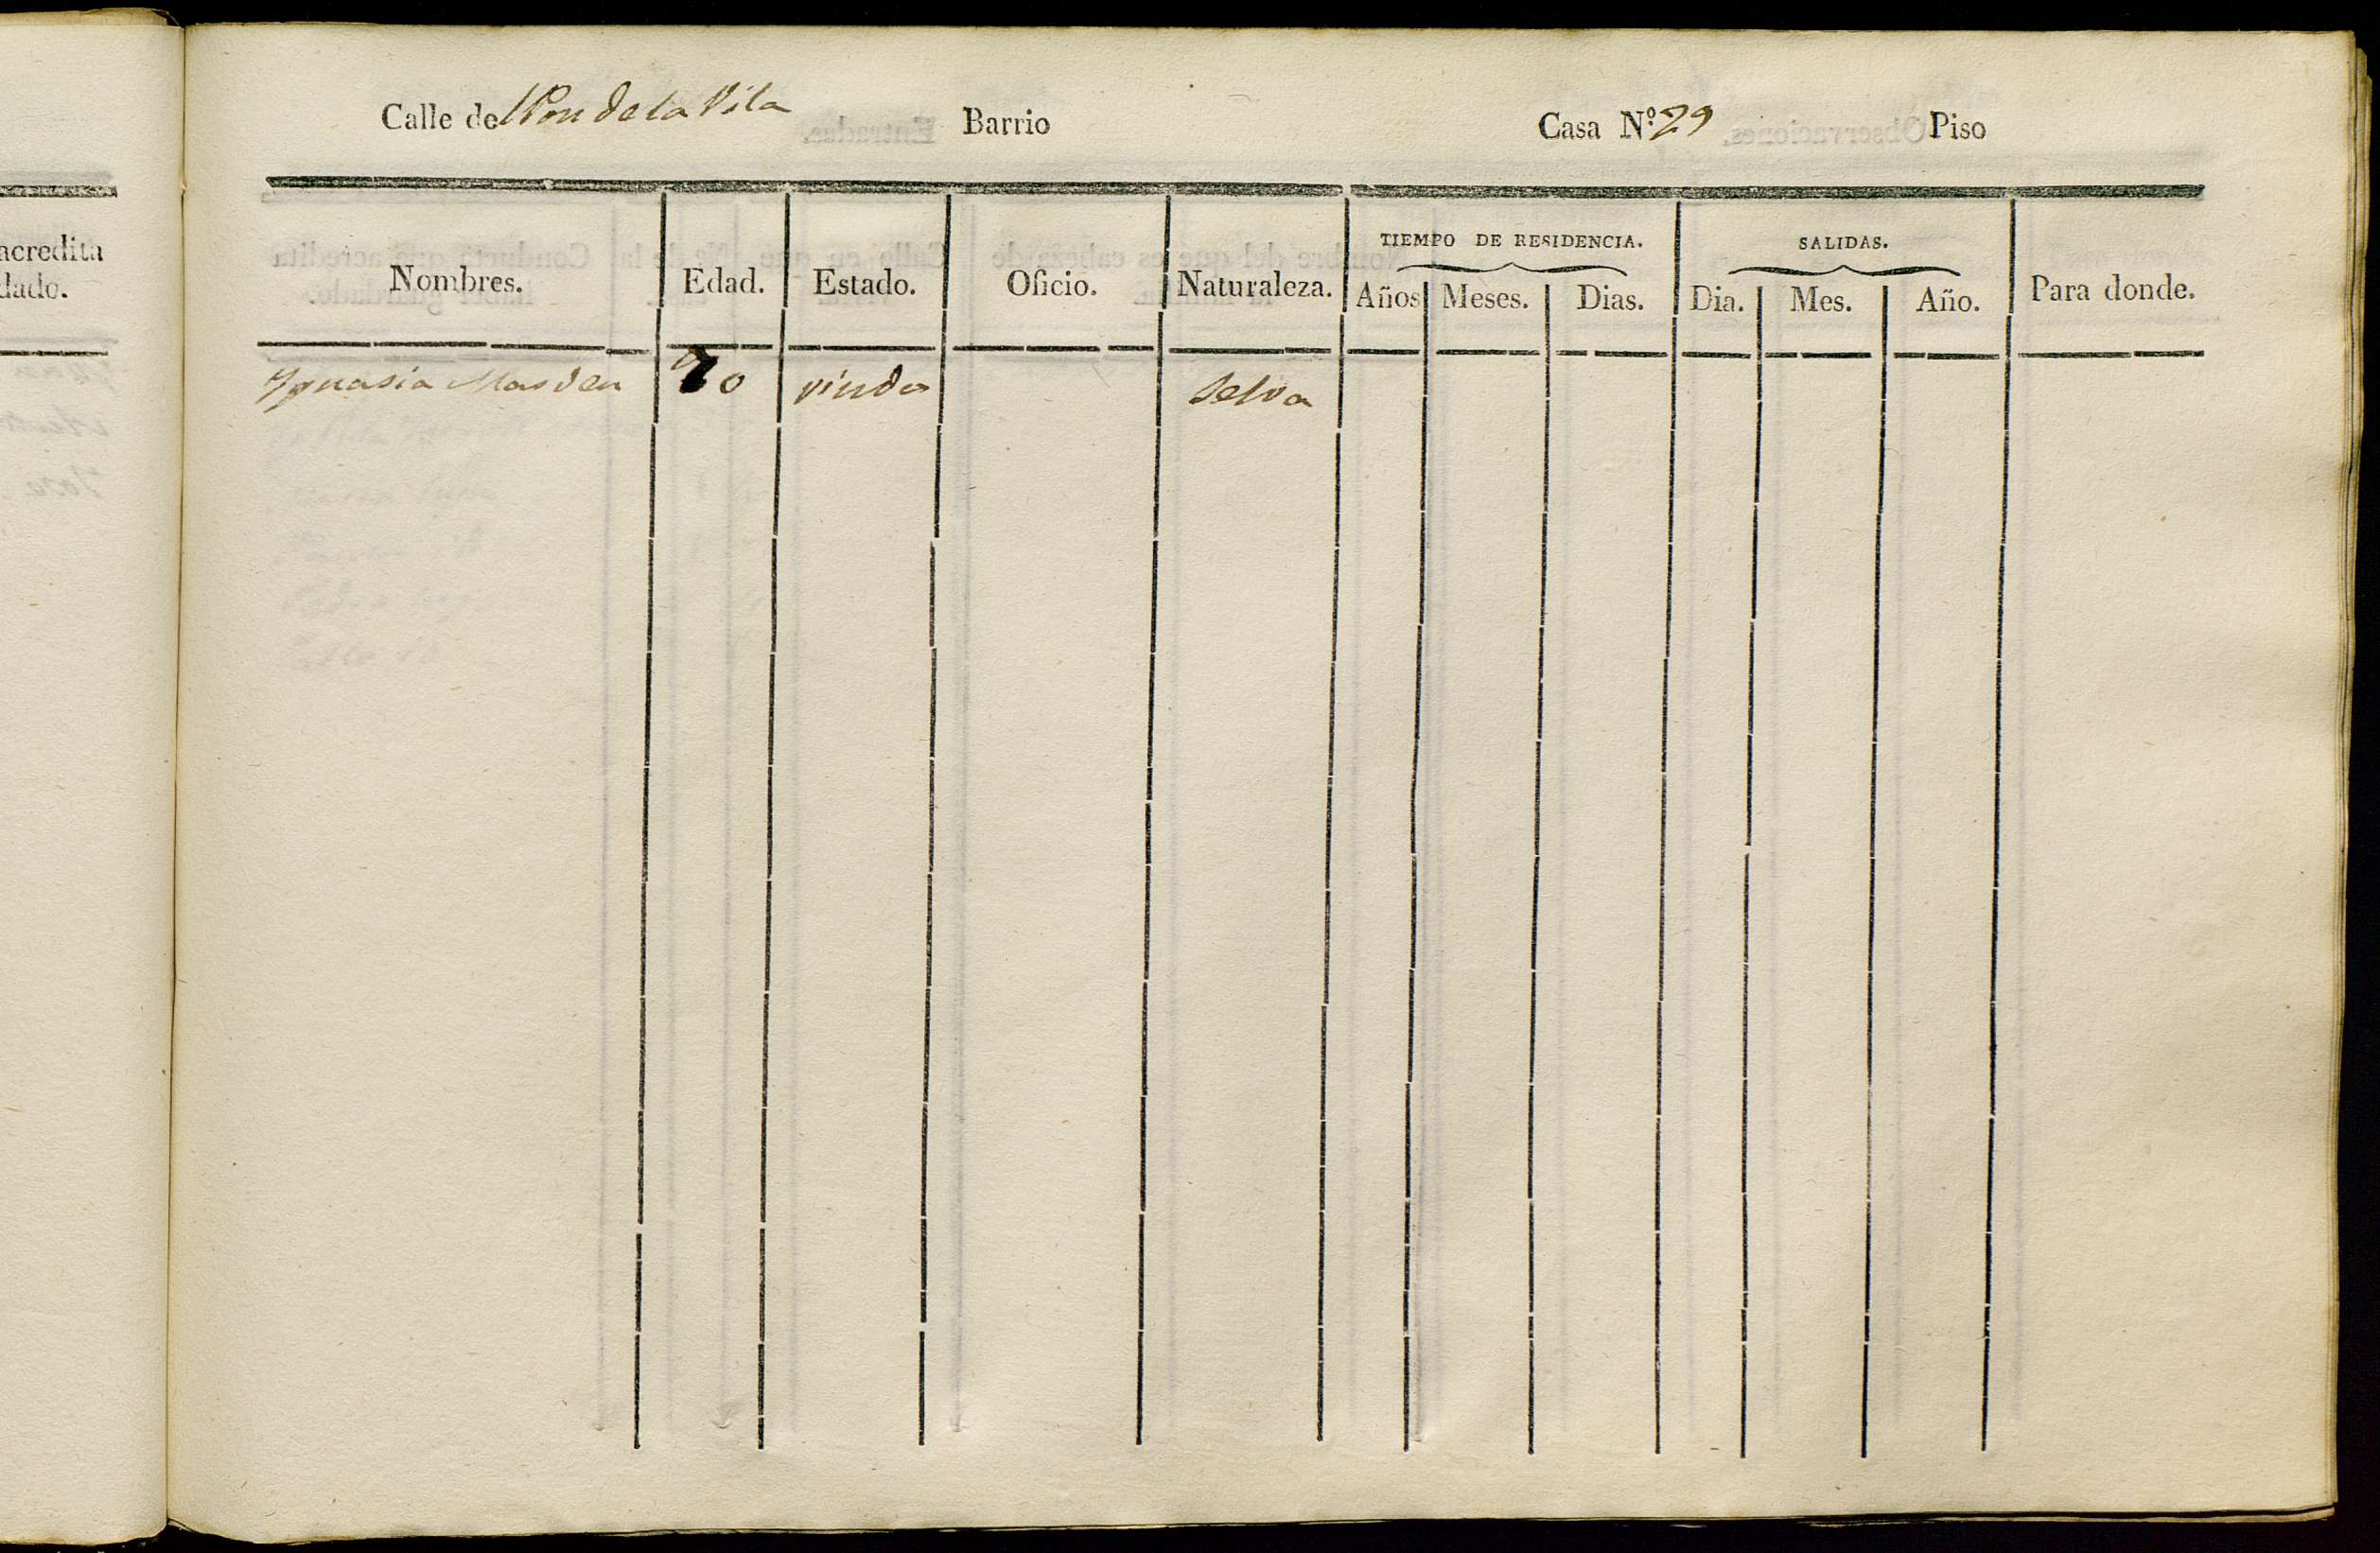 acredita
dado.
Calle de Pou de la Vila Barrio Casa N.º 29 Piso
Nombres. Edad. Estado. Oficio. Naturaleza. TIEMPO DE RESIDENCIA. SALIDAS. Para donde.
Años Meses. Dias. Dia. Mes. Año.
Ygnasia Masdeu viuda Selva